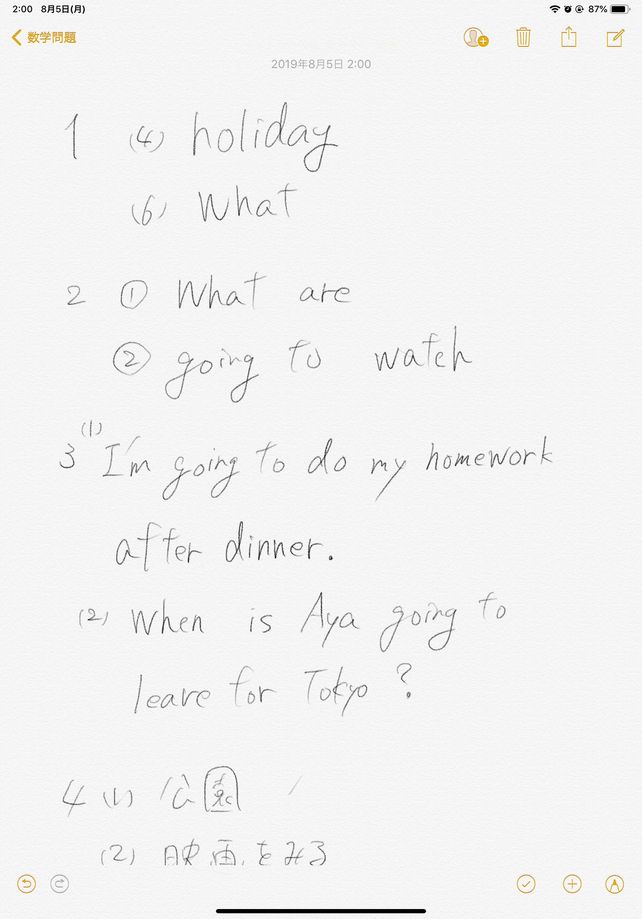 2:00 8月5日(月) 87%
数学問題
2019年8月5日 2:00
1 (4) holiday
(6) What
2 ① What are
② going to watch
(1)
3 I'm going to do my homework
after dinner.
(2) When is Aya going to
leave for Tokyo?
4 (1) 公園
(2) 映画をみる